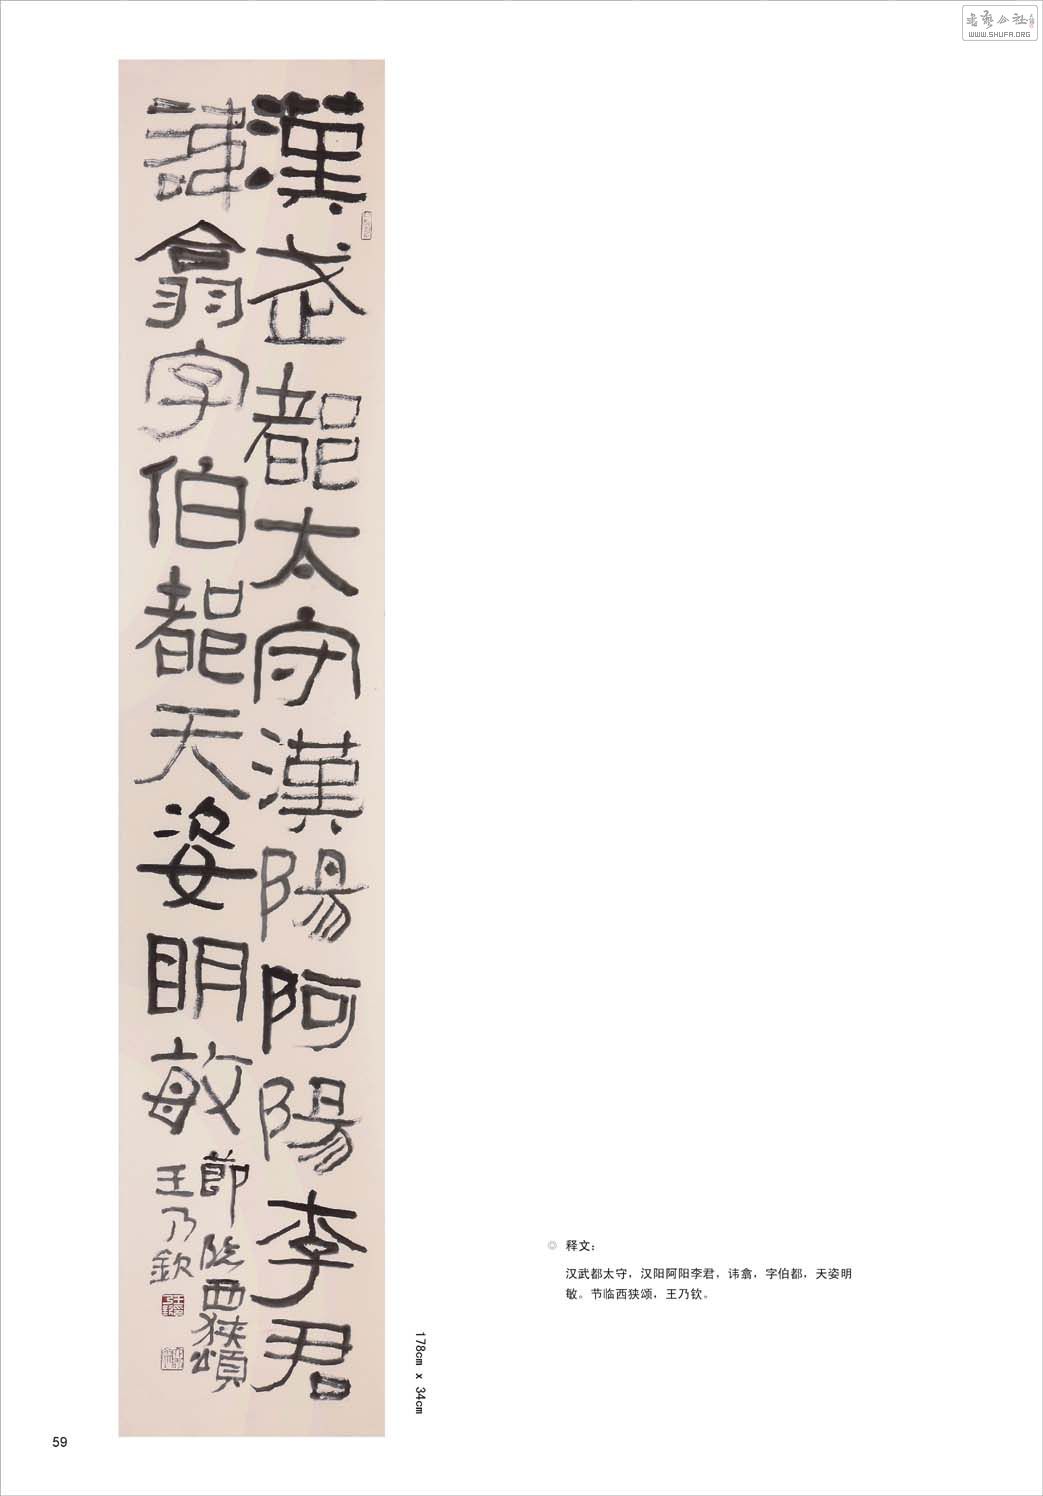 書藝公社
WWW.SHUFA.ORG
漢武都太守漢陽阿陽李君
諱翕字伯都天姿明敏
節臨西狹頌
王乃欽
178cm x 34cm
◎ 释文：
汉武都太守，汉阳阿阳李君，讳翕，字伯都，天姿明
敏。节临西狭颂，王乃钦。
59